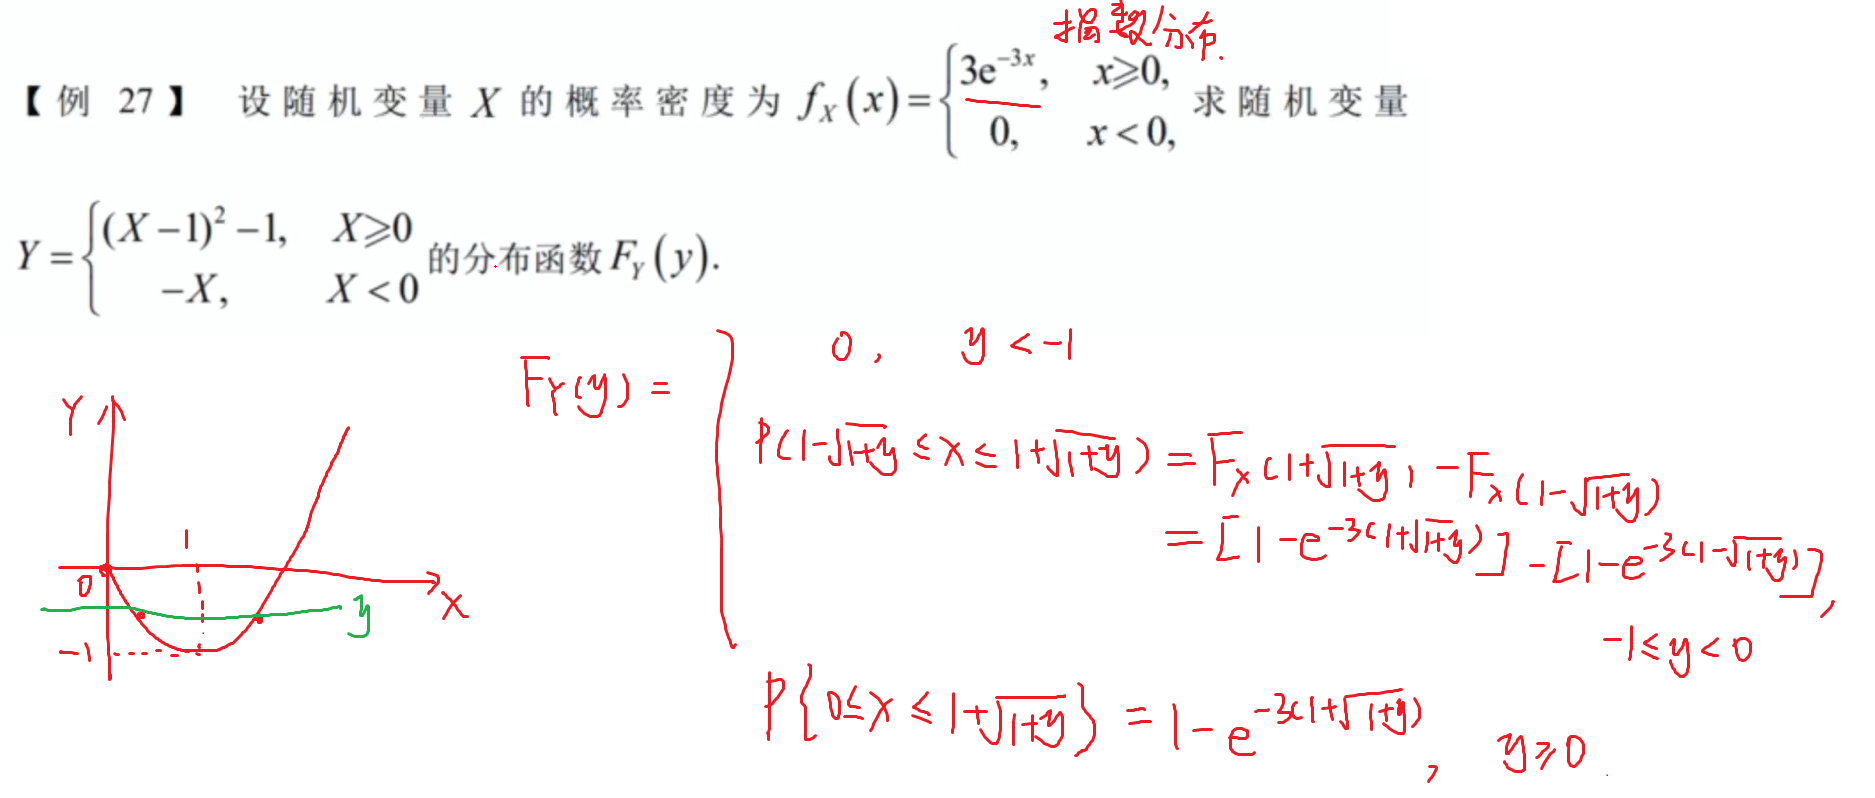 指数分布.
【例 27】 设随机变量 X 的概率密度为 f_X(x)={3e^{-3x}, x⩾0, 0, x<0, 求随机变量
Y={(X-1)²-1, X⩾0 -X, X<0 的分布函数 F_Y(y).
F_Y(y) = { 0, y < -1
P(1-√(1+y) ≤ X ≤ 1+√(1+y)) = F_X(1+√(1+y)) - F_X(1-√(1+y))
= [1-e^{-3(1+√(1+y))}] - [1-e^{-3(1-√(1+y))}],
-1≤y<0
P{0≤X≤1+√(1+y)} = 1-e^{-3(1+√(1+y))}, y⩾0.
Y
1
0
X
y
-1